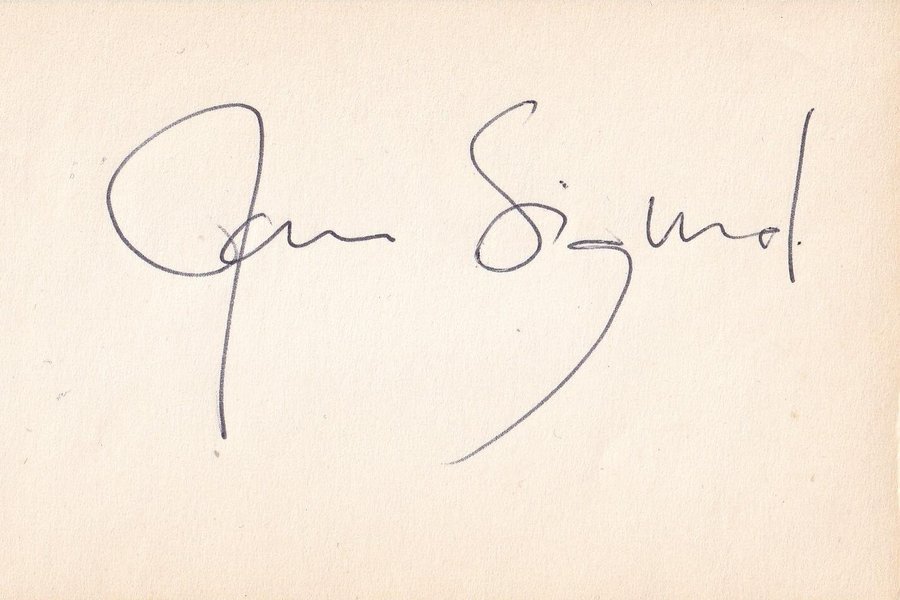 Jan Sigurd